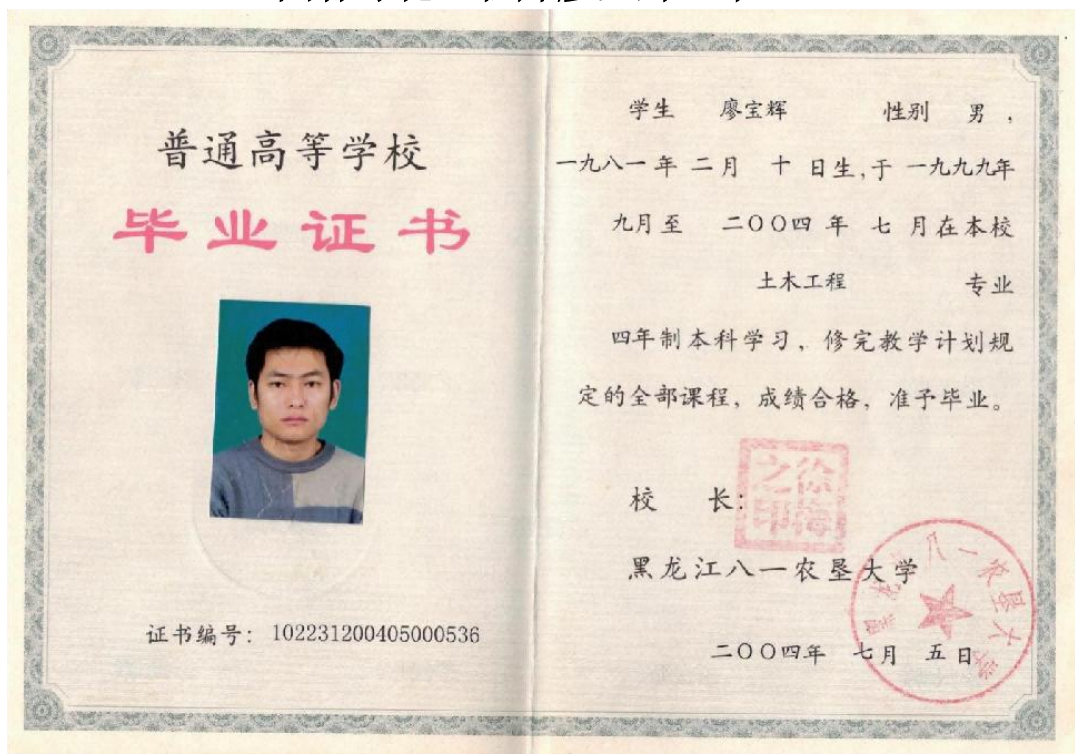 普通高等学校
毕业证书
证书编号：102231200405000536
学生 廖宝辉 性别 男，
一九八一年 二月 十 日生,于 一九九九年
九月至 二〇〇四 年 七 月在本校
土木工程 专业
四年制本科学习，修完教学计划规
定的全部课程，成绩合格，准予毕业。
徐梅之印
校 长:
黑龙江八一农垦大学
黑龙江八一农垦大学
二〇〇四年 七月 五日